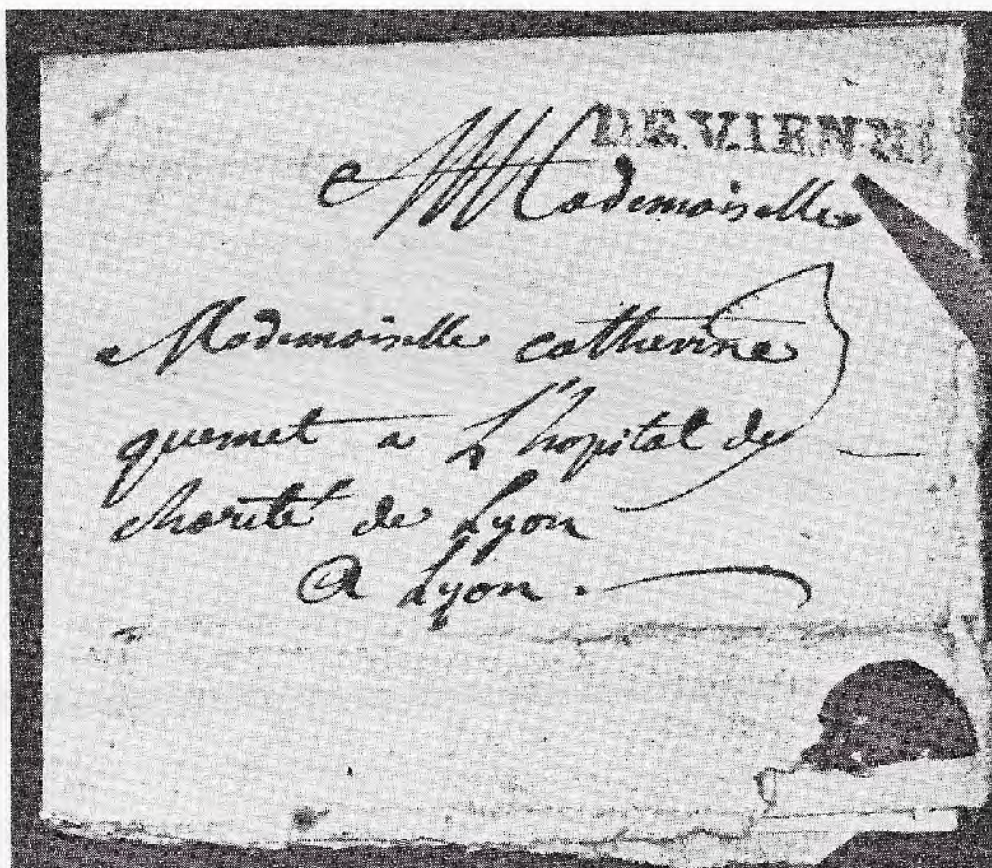 DE VIENNE
Mademoiselle
Mademoiselle catherine
quemet a L'hopital de
charité de Lyon
a Lyon.